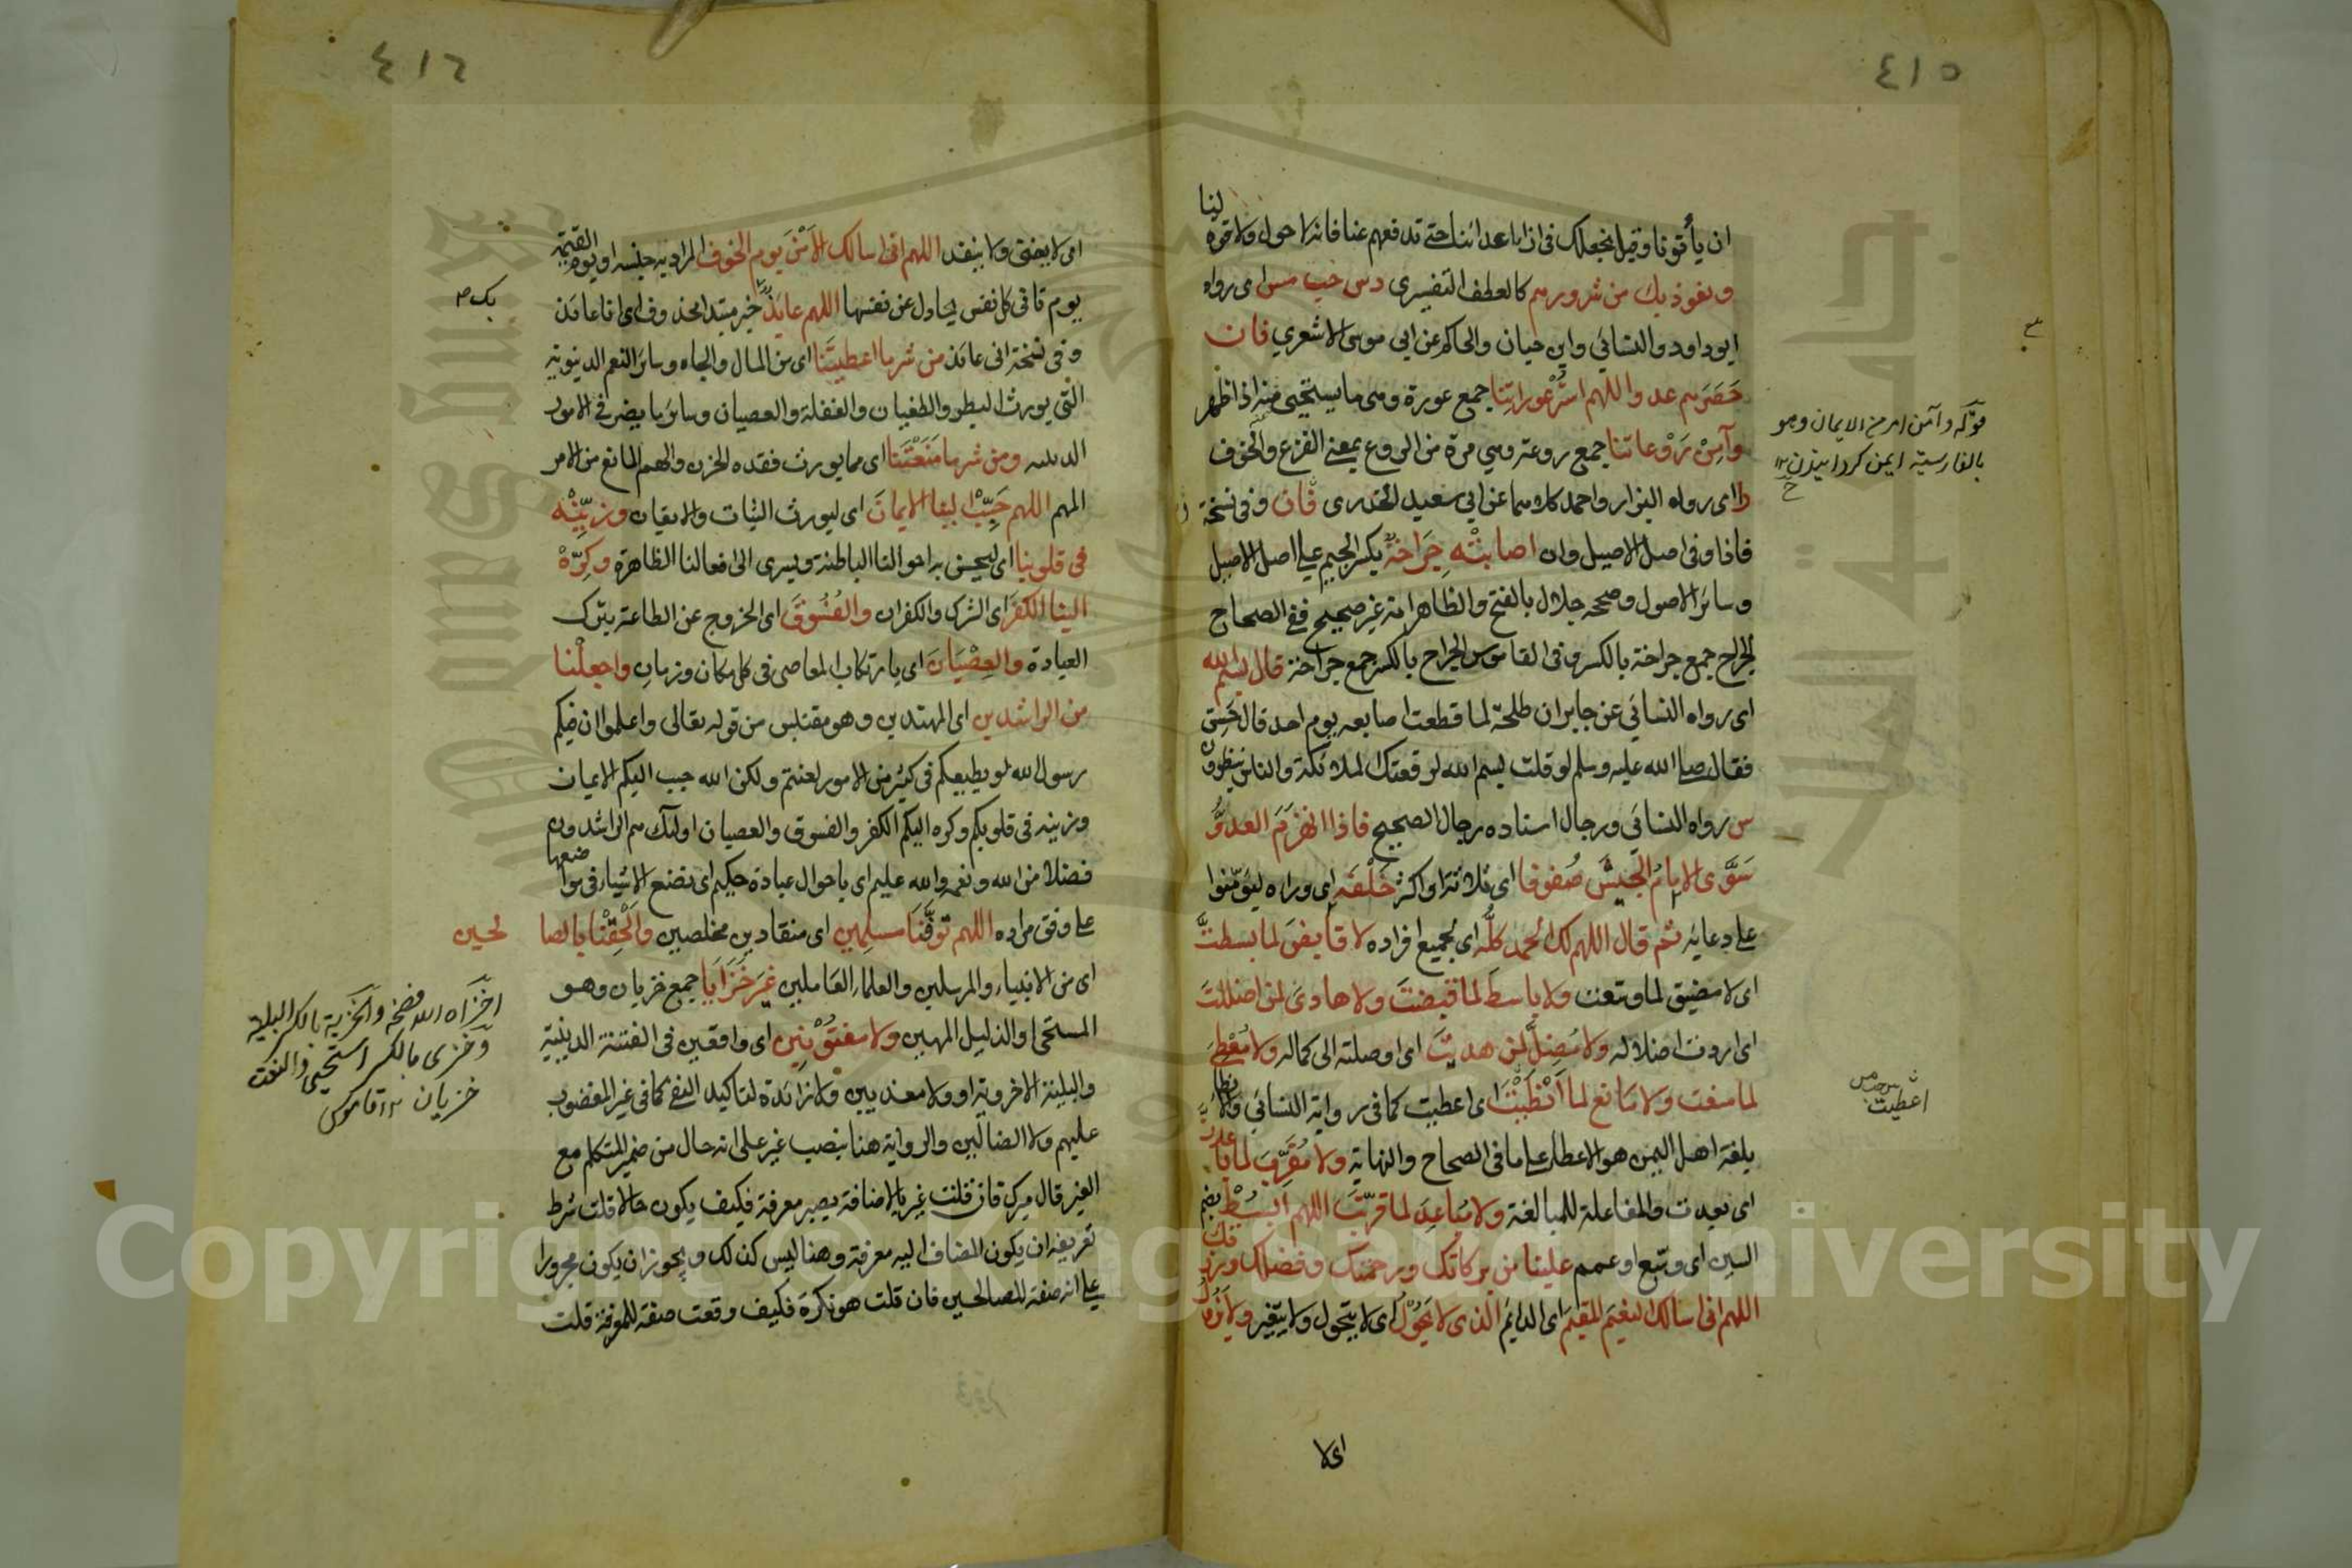 ٤١٥
ان يأتونا وقيل نجعلك في ازاء اعدائنا حتى تدفعهم عنا فانه لا حول ولا قوة لنا
ونعوذ بك من شرورهم كالعطف التفسيري دس حب مس اى رواه
ابو داود والنسائي وابن حبان والحاكم عن ابي موسى الاشعري فان
حصرهم عدو اللهم استر عوراتنا جمع عورة وهي ما يستحيى منه اذا ظهر
وآمن روعاتنا جمع روعة وهي مرة من الروع بمعنى الفزع والخوف
را اى رواه البزار واحمد كلاهما عن ابي سعيد الخدرى فان وفي نسخة
فاذا وفي اصل الاصيل وان اصابته جراحة بكسر الجيم على اصل الاصيل
وسائر الاصول وصححه جلال بالفتح والظاهر انه غير صحيح ففي الصحاح
الجراح جمع جراحة بالكسر وفي القاموس الجراح بالكسر جمع جراحة قال بسم الله
اى رواه النسائي عن جابر ان طلحة لما قطعت اصابعه يوم احد قال حس
فقال صلى الله عليه وسلم لو قلت بسم الله لرفعتك الملائكة والناس ينظرون
س رواه النسائي ورجال اسناده رجال الصحيح فاذا انهزم العدو
سوى الامام الجيش صفوفا اى ثلاثة او اكثر خلفه اى وراه ليؤمنوا
على دعائه ثم قال اللهم لك الحمد كله اى بجميع افراده لا قابض لما بسطت
اى لا مضيق لما وسعت ولا باسط لما قبضت ولا هادى لمن اضللت
اى اردت اضلاله ولا مضل لمن هديت اى اوصلته الى كماله ولا معطى
لما منعت ولا مانع لما انطيت اى اعطيت كما في رواية النسائي والانطاء
بلغة اهل اليمن هو الاعطاء على ما في الصحاح والنهاية ولا مقرب لما باعدت
اى بعدت والمفاعلة للمبالغة ولا مباعد لما قربت اللهم ابسط بضم
السين اى وسع او عمم علينا من بركاتك ورحمتك وفضلك ورزقك
اللهم انى اسالك النعيم المقيم اى الدائم الذى لا يحول اى لا يتحول ولا يتغير ولا يزول
اى لا
قوله وآمن امر من الايمان وهو
بالفارسية ايمن كردانيدن ١٢
اعطيت
٤١٦
اى لا يفنى ولا ينفد اللهم انى اسالك الامن يوم الخوف المراد به جنسه او يوم القيمة
يوم تاتى كل نفس تجادل عن نفسها اللهم عائذ خبر مبتدا محذوف اى انا عائذ
بك
وفي نسخة انى عائذ من شر ما اعطيتنا اى من المال والجاه وسائر النعم الدنيوية
التى يورث البطر والطغيان والغفلة والعصيان وسائر ما يضر في الامور
الدينية ومن شر ما منعتنا اى مما يورث فقده الحزن والهم المانع من الامر
المهم اللهم حبب الينا الايمان اى ليورث الثبات والايقان وزينه
في قلوبنا اى ليحسن به احوالنا الباطنة ويسرى الى افعالنا الظاهرة وكره
الينا الكفر اى الشرك والكفران والفسوق اى الخروج عن الطاعة بترك
العبادة والعصيان اى بارتكاب المعاصى في كل مكان وزمان واجعلنا
من الراشدين اى المهتدين وهو مقتبس من قوله تعالى واعلموا ان فيكم
رسول الله لو يطيعكم في كثير من الامور لعنتم ولكن الله حبب اليكم الايمان
وزينه في قلوبكم وكره اليكم الكفر والفسوق والعصيان اولئك هم الراشدون
فضلا من الله ونعمة والله عليم اى باحوال عباده حكيم اى بضع الاشياء في مواضعها
على وفق مراده اللهم توفنا مسلمين اى منقادين مخلصين والحقنا بالصالحين
اى من الانبياء والمرسلين والعلماء العاملين غير خزايا جمع خزيان وهو
المستحى او الذليل المهين ولا مفتونين اى واقعين في الفتنة الدينية
والبلية الاخروية او ولا معذبين ولا زائدة لتاكيد النفى كما في غير المغضوب
عليهم ولا الضالين والرواية هنا بنصب غير على انه حال من ضمير المتكلم مع
الغير قال ميرك فان قلت غير بالاضافة يصير معرفة فكيف يكون حالا قلت شرط
تعريفه ان يكون المضاف اليه معرفة وهنا ليس كذلك ويجوز ان يكون مجرورا
على انه صفة للصالحين فان قلت هو نكرة فكيف وقعت صفة للمعرفة قلت
اخزاه الله فضحه والخزية بالكسر البلية
وخزى بالكسر استحيى والنعت
خزيان ١٢ قاموس
Copyright © King Saud University